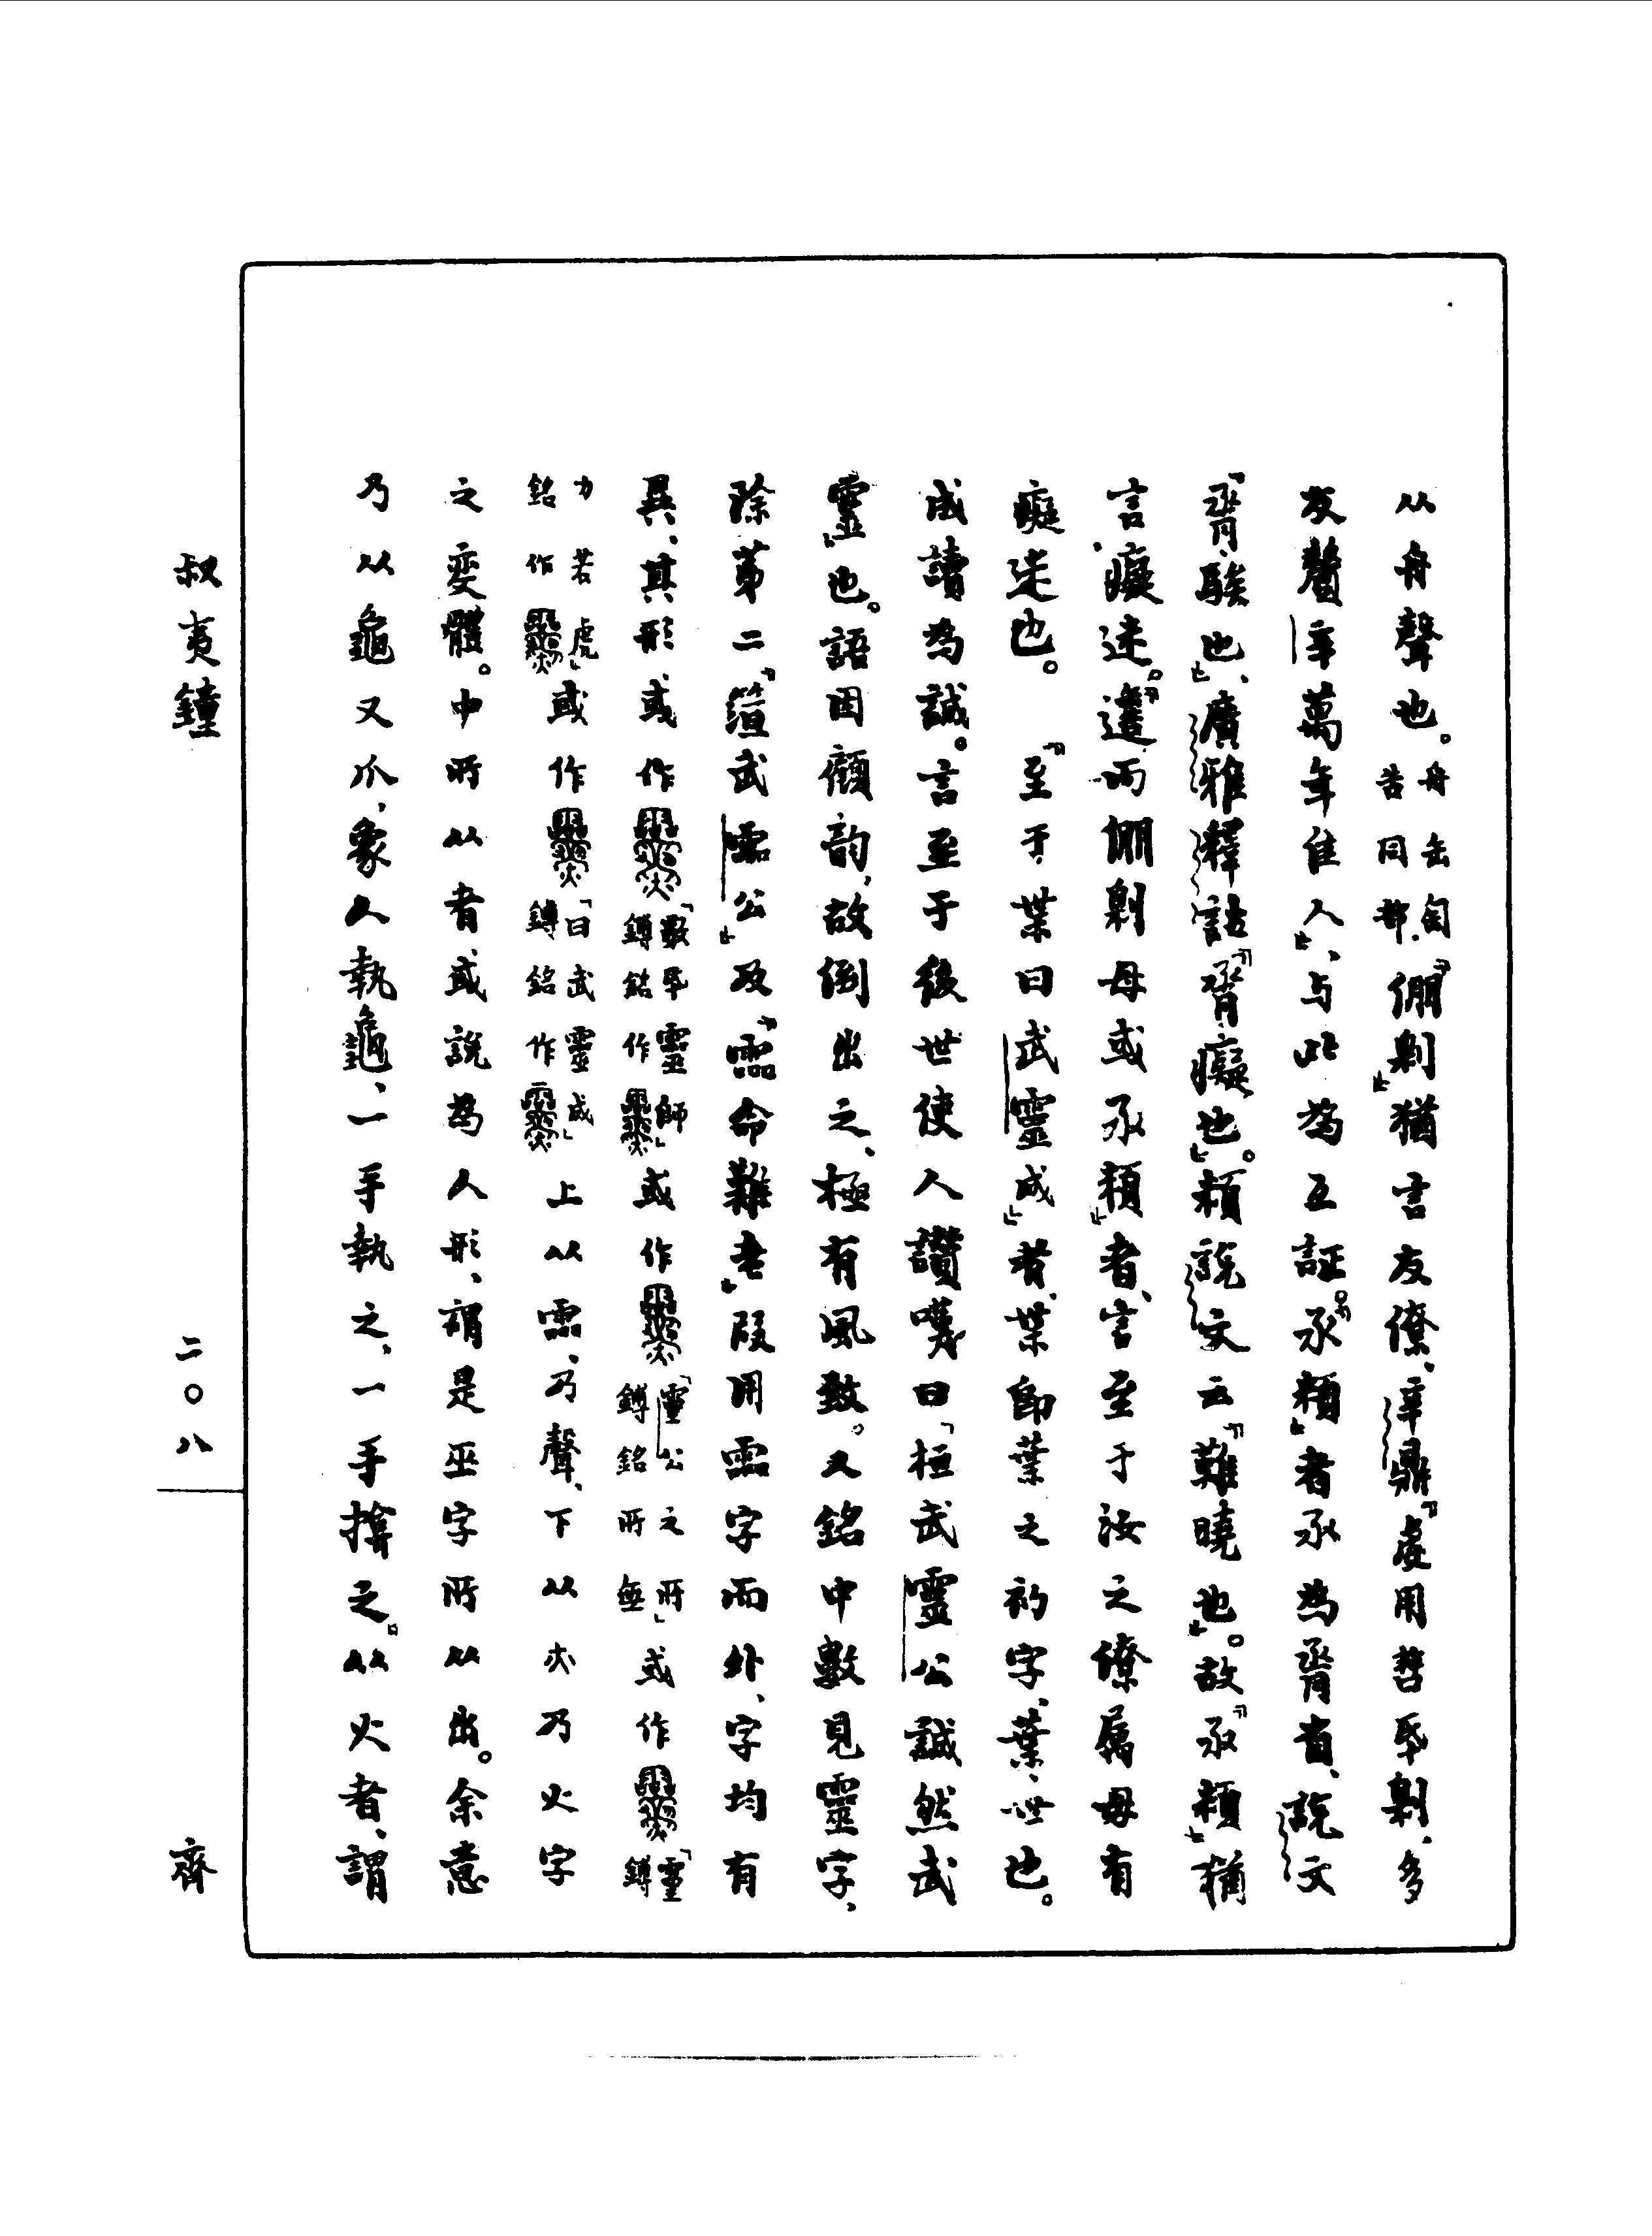 从舟聲也。舟缶匋告同部.「倗剿」猶言友僚、辛鼎「虔用𠹙氒剿.多
友釐辛萬年隹人」、与此為互証。「承類」者承為脀省、說文
「脀、騃也」、廣雅釋詁「脀癡也」。類說文云「難曉也」。故「承類」猶
言.癡迷。「𨗨而倗剿毋或承類」者、言至于汝之僚属毋有
癡迷也。「至于枼曰武靈成」者.枼即葉之初字、葉、世也。
成讀為誠。言至于後世使人讚嘆曰「桓武靈公誠然武
靈」也。語因顧韵,故倒出之、極有風致。又銘中數見靈字、
除第二「𧻚武霝公」及「霝命難老」段用霝字而外、字均有
異、其形或作「數氒靈師」鎛銘作或作「靈公之所」鎛銘所無或作「靈
力若虎」鎛銘作或作「曰武靈成」鎛銘作上从霝、乃聲、下从夶乃火字
之変體。中所从者或說為人形、謂是巫字所从出。余意
乃从龜又爪,象人執龜、一手執之、一手揜之。从火者、謂
叔夷鐘
二〇八
齊